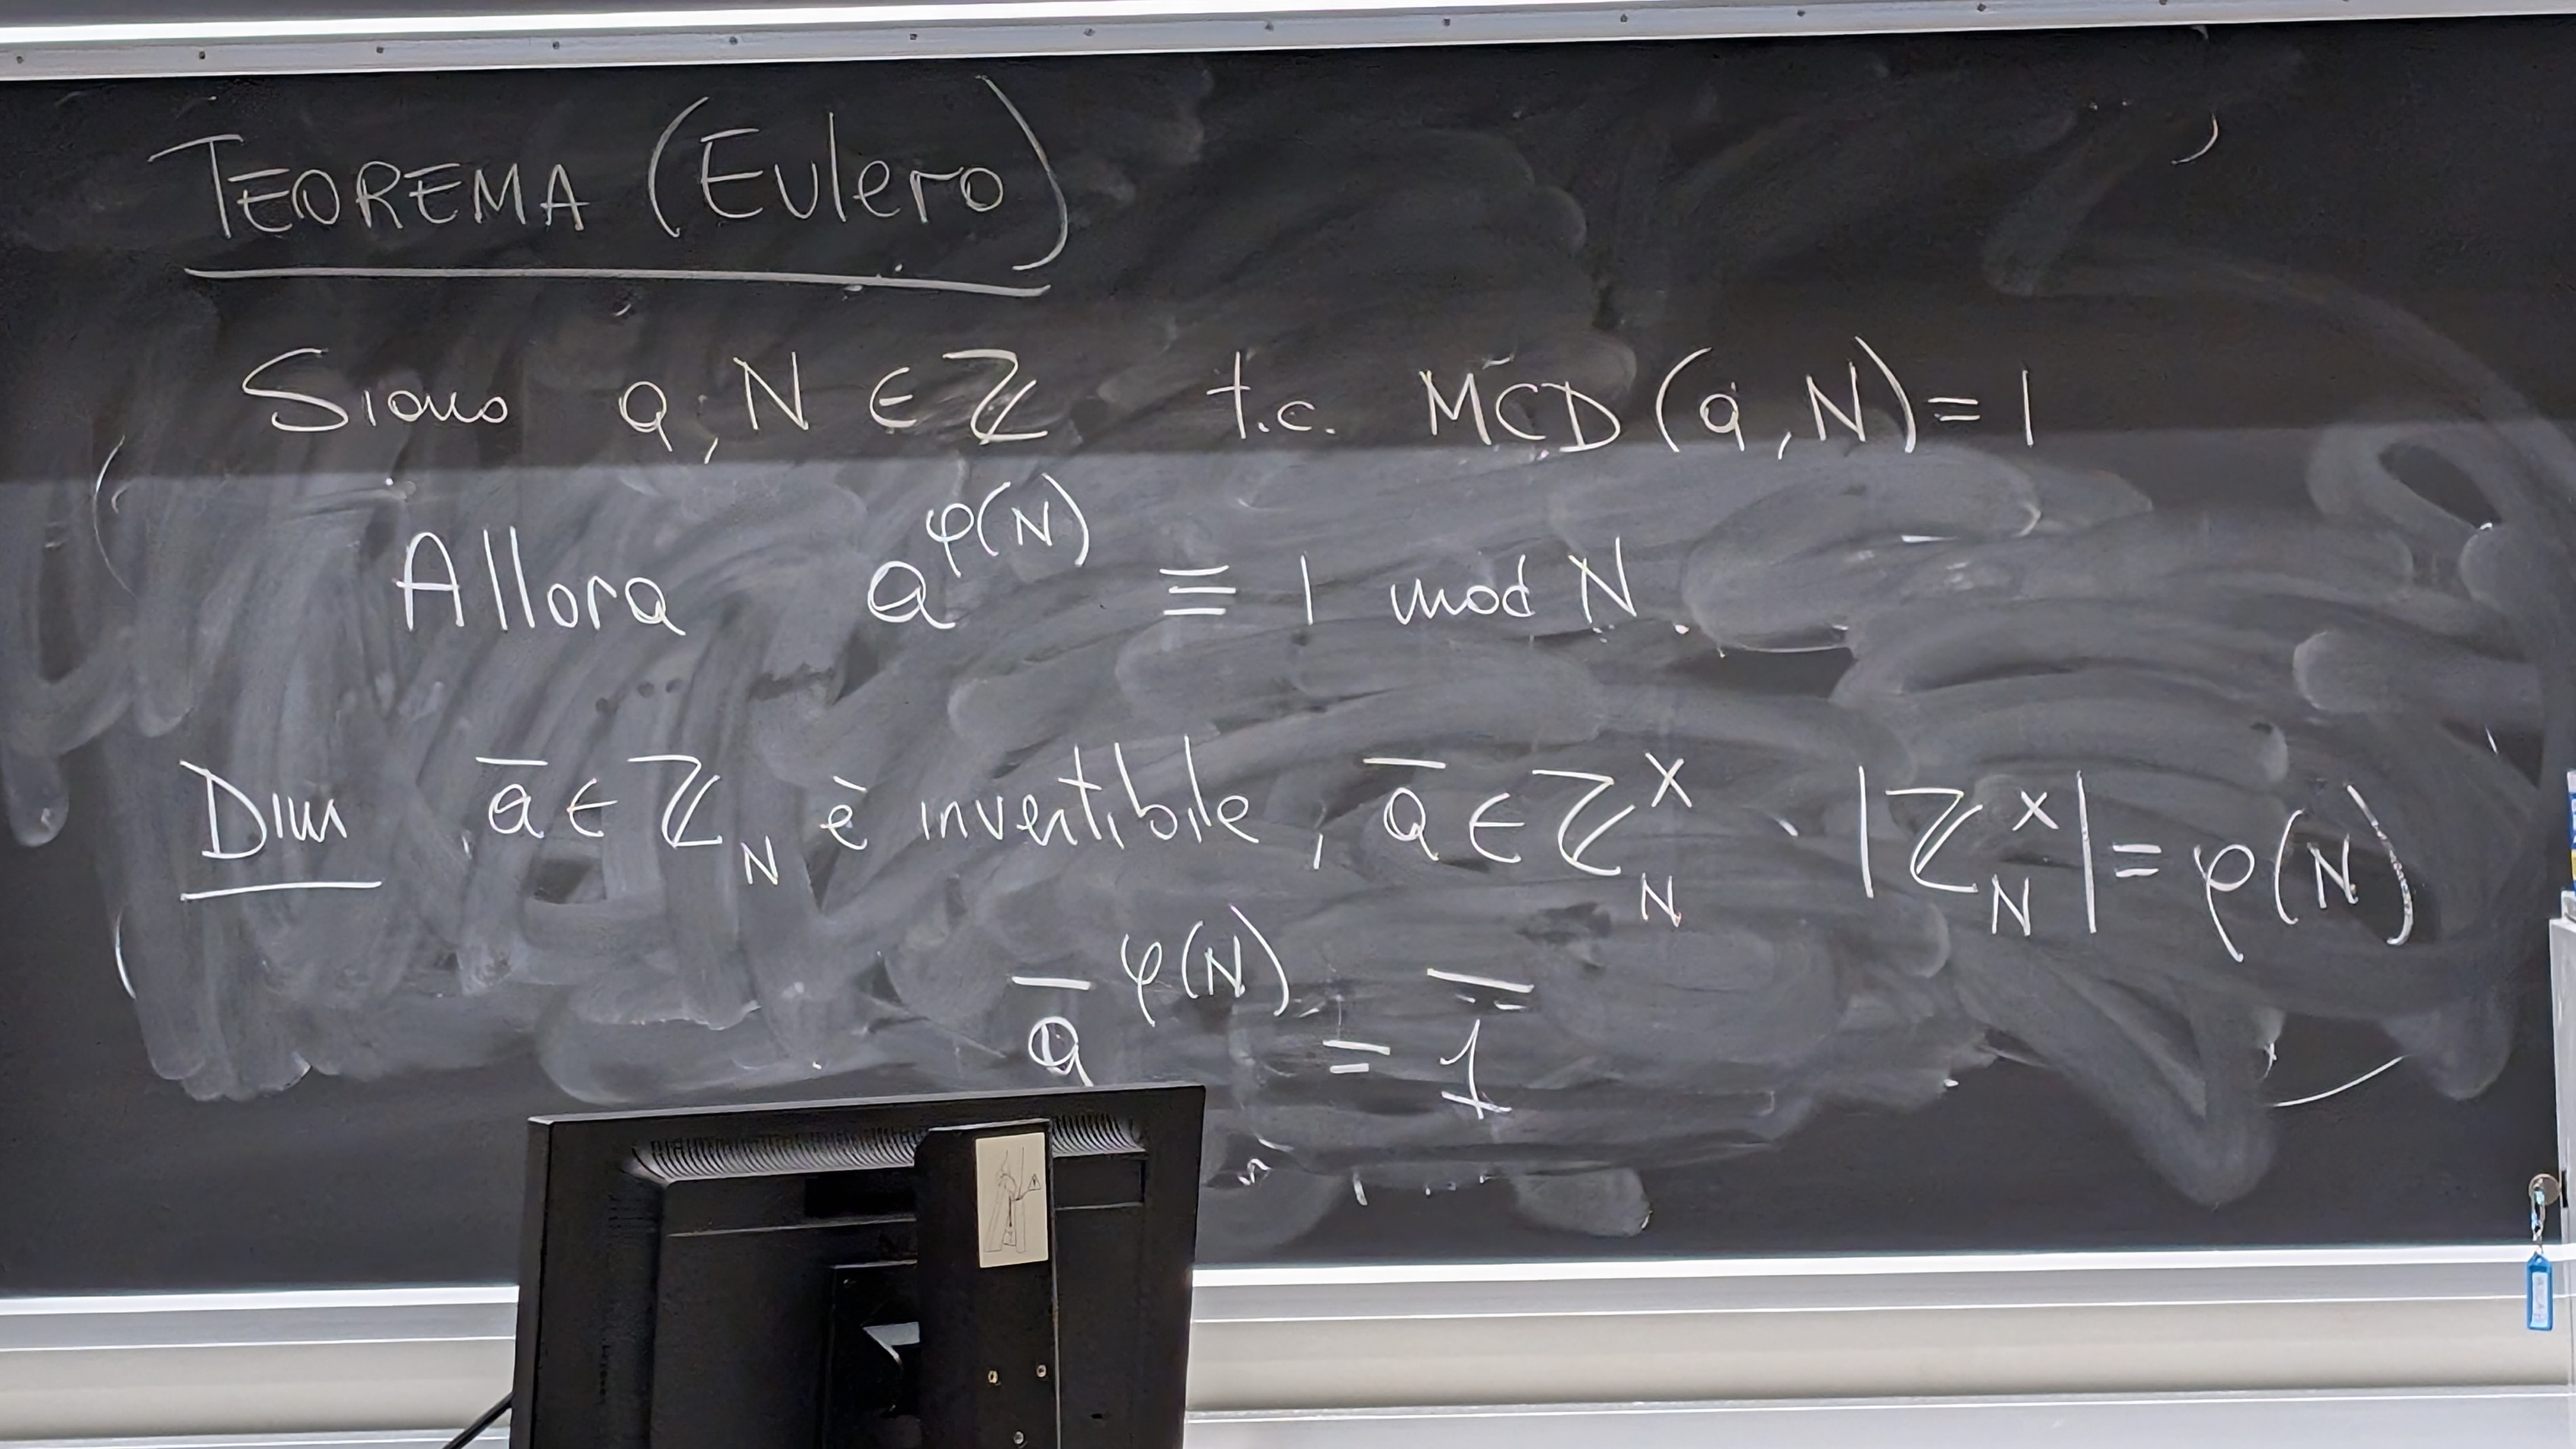 TEOREMA (Eulero)
Siano a, N ∈ ℤ t.c. MCD(a, N) = 1
Allora a^φ(N) ≡ 1 mod N.
Dim ā ∈ ℤ_N è invertibile, ā ∈ ℤ_N^×. |ℤ_N^×| = φ(N)
ā^φ(N) = 1̄